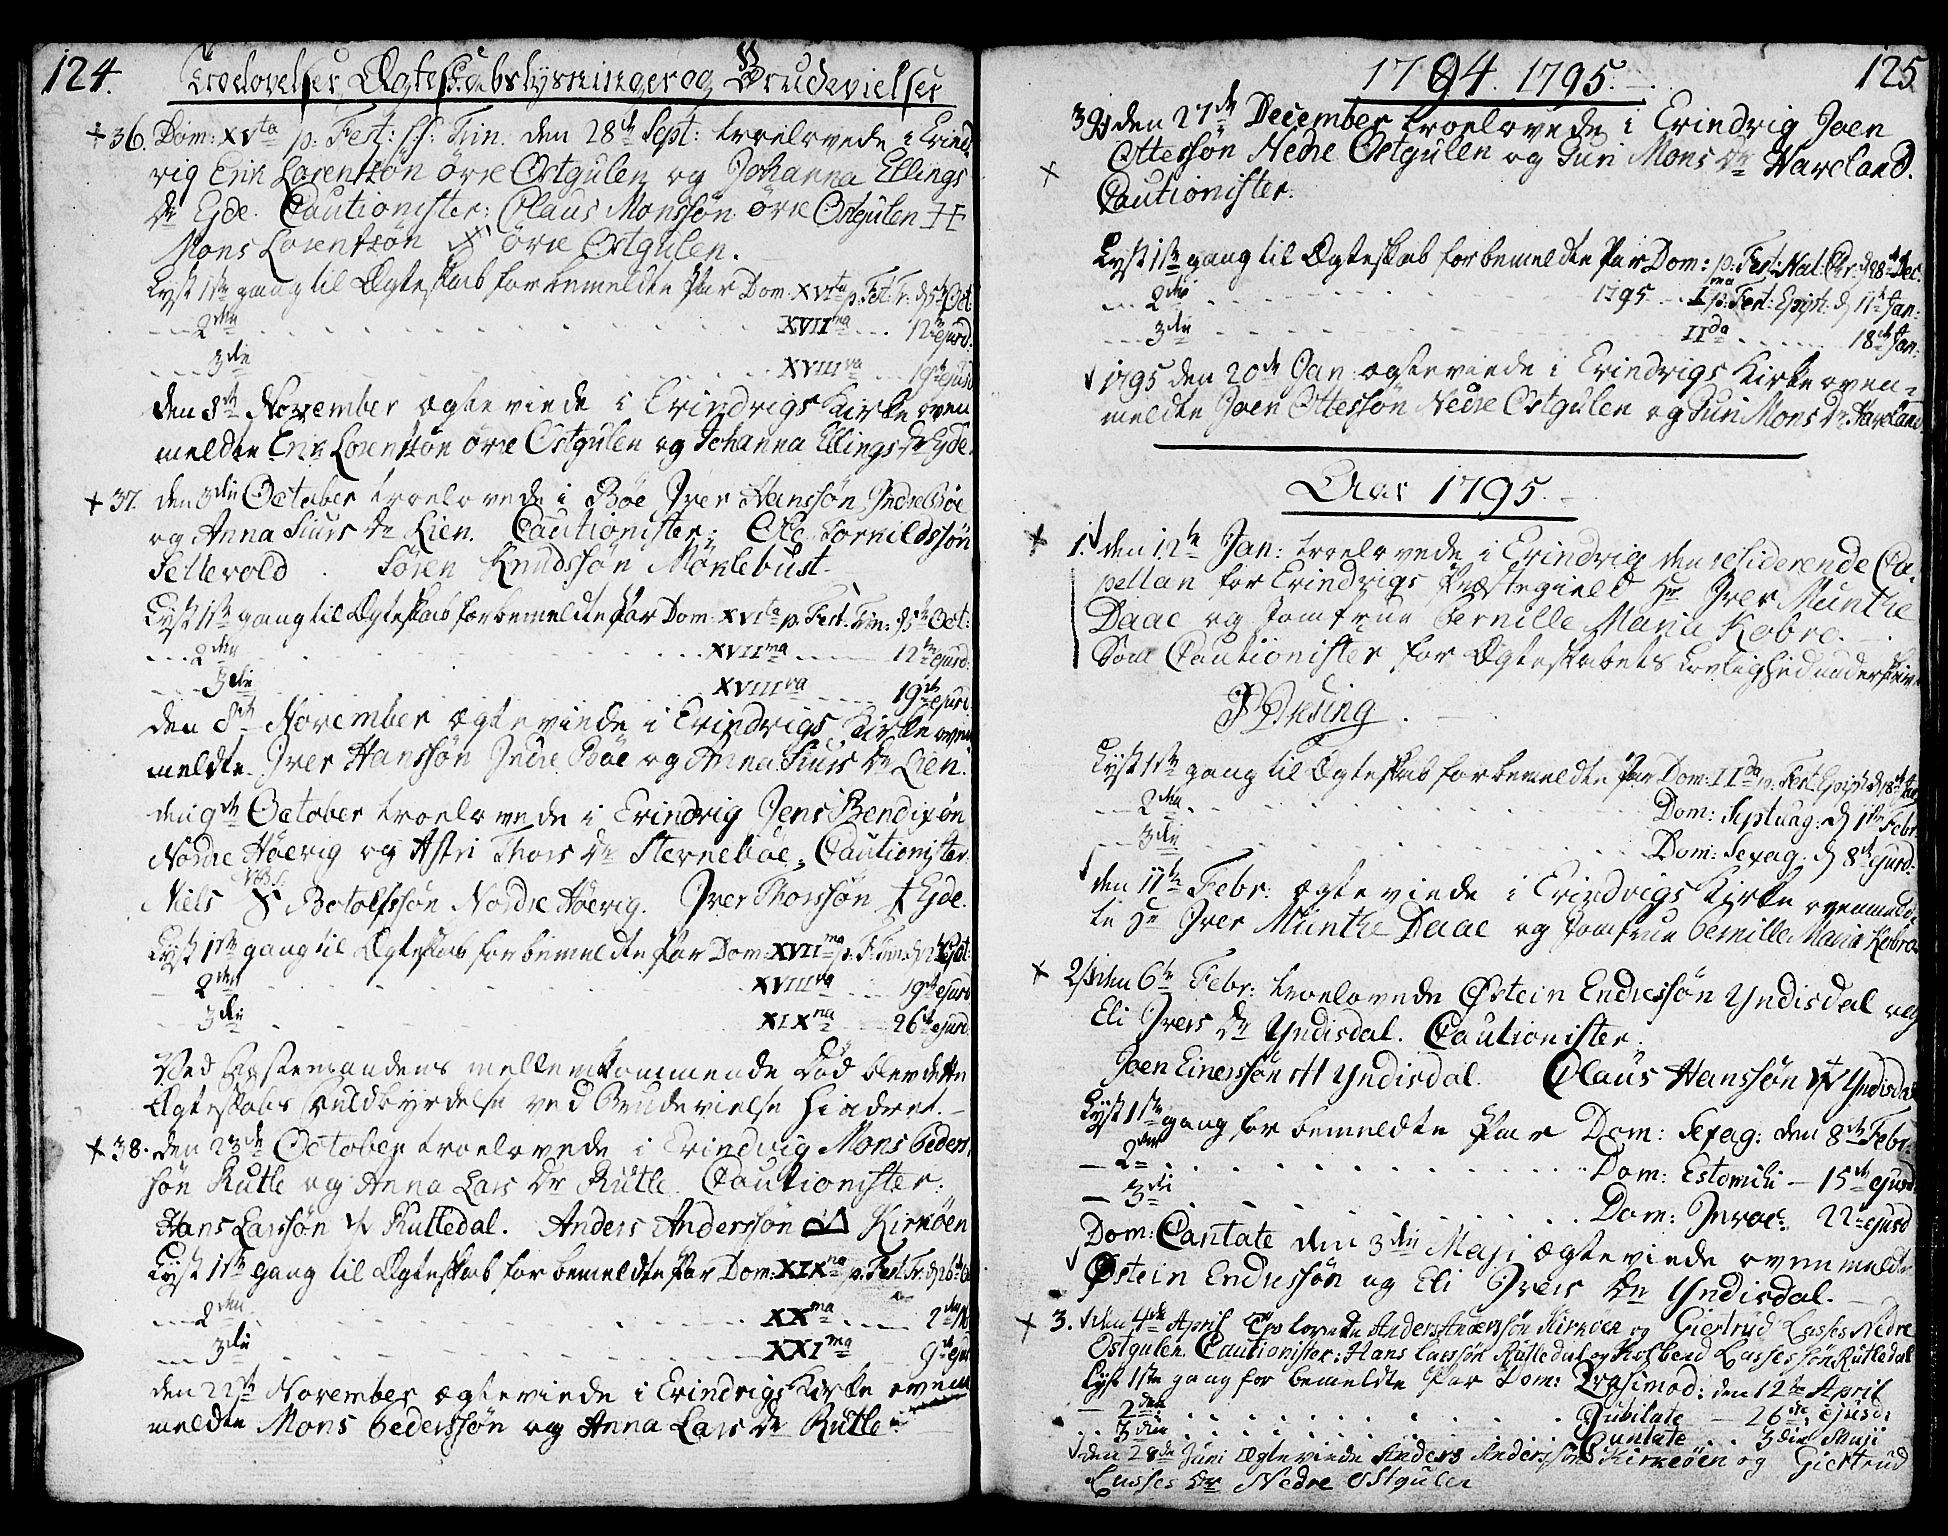 124. Troelovelser, Ægteskabslysninger og Brudevielser
+ 36. Dom: XVta p: Fest: SS: Trin. den 28de Sept: troelovede i Eving-
vig Erik Lorentzøn övre Ostgulen og Johanna Ellings
Dr Eyde. Cautionister: Olaus Monssøn övre Ostgulen
Mons Lorentzøn övre Ostgulen.
Lyst 1ste gang til Ægteskab for bemeldte Par Dom: XVIta p: Fest: Tr: d 5te Oct:
2den XVIIma 12te ejusd:
3die XVIIIva 19de ejusd
den 8de November ægteviede i Evindvigs Kirke oven
meldte Erik Lorentzøn övre Ostgulen og Johanna Ellings Dr Eyde.
+ 37. den 3die October troelovede i Bøe Iver Hanssøn Indre Bøe
og Anna Siurs Dr Lien. Cautionister: Ole Tornildssøn
Settevold Søren Knudssøn Möklebust
Lyst 1ste gang til Ægteskab for bemeldte Par Dom: XVIta p: Fest: Trin: d 5te Oct:
2den XVIIma 12te ejusd:
3die XVIIIva 19de ejusd
den 8de November ægteviede i Evindvigs Kirke oven
meldte Iver Hanssøn Indre Bøe og Anna Siurs Dr Lien.
den 9de October troelovede i Evindvig Jens Bendixøn
Nordre Höevig og Astri Thors Dr Sternebøe, Cautionister
Niels Botolfssøn Nordre Höevig. Iver Thorssøn Eyde.
Lyst 1ste gang til Ægteskab for bemeldte Par Dom: XVIIma p: F: Trin: d 12te Oct:
2den XVIIIva 19de ejusd
3die XIXna 26de ejusd
Ved Festemandens mellemkommende Död blev dette
Ægteskabs Fuldbyrdelse ved Brudevielse hindret.
+ 38. den 23de October troelovede i Evindvig Mons Peders
søn Rutle og Anna Lars Dr Rutle. Cautionister:
Hans Larssøn Rutledal. Anders Anderssøn Kirkøen
Lyst 1ste gang til Ægteskab for bemeldte Par Dom: XIXna p: Fest: Tr: d 26de Oc
2den XXma 2den No
3die XXIma 9de ejus
den 22de November ægteviede i Evindvigs Kirke oven
meldte Mons Pederssøn og Anna Lars Dr Rutle.
1794. 1795. 125
39 den 27de December troelovede i Evindvig Joen
Ottessøn Nedre Ostgulen og Guri Mons Dr Haveland.
Cautionister.
Lyst 1ste gang til Ægteskab for bemeldte Par Dom: p: Fest: Nat: Chr: d 28de Dec.
2den 1795 Ima p: Fest: Epiph: d 11te Jan:
3die IIda 18de Jan:
1795 den 20de Jan: ægteviede i Evindvigs Kirke oven-
meldte Joen Ottessøn Nedre Ostgulen og Guri Mons Dr Haveland
Aar 1795.
+ 1. den 12te Jan: troelovede i Evindvig den residerende Ca-
pellan for Evindvigs Præstegield Hr Iver Munthe
Daae og Jomfrue Pernille Maria Kobro.
Som Cautionister for Ægteskabets Lovlighed underskriver
Lyst 1ste gang til Ægteskab for bemeldte Par Dom: IIda p: Fest Epiph d 18de Jan
2den Dom: Septuag: d 1ste Febr
3die Dom: Sexag: d 8de ejusd:
den 11te Febr: ægteviede i Evindvigs Kirke ovenmeld-
te Hr Iver Munthe Daae og Jomfrue Pernille Maria Kobro
+ 2. den 6te Febr: troelovede Østein Endressøn Yndisdal og
Eli Ivers Dr Yndisdal. Cautionister.
Joen Einerssøn Yndisdal. Olaus Hanssøn Yndisdal
Lyst 1ste gang for bemeldte Par Dom: Sexag: den 8de Febr:
2den Dom: Estomihi - 15de ejusd
3die Dom: Invoc: 22de ejusd
Dom: Cantate den 3die Maji ægteviede ovenmeldte
Østein Endressøn og Eli Ivers Dr Yndisdal.
+ 3. den 4de April Trolovede Anders Anderssøn Kirkøen og Giertrud Lasses Nedre
Ostgulen. Cautionister: Hans Larssøn Rutledal og Kolbend Lassessøn Rutledal
Lyst 1ste gang for bemeldte Par Dom: Qvasimod: den 12te April
2den Jubilate - 26de ejusd:
3die Cantate 3die Maji
den 28de Juni Ægteviede Anders Anderssøn Kirkeøen og Giertrud
Lasses Dr Nedre Ostgulen